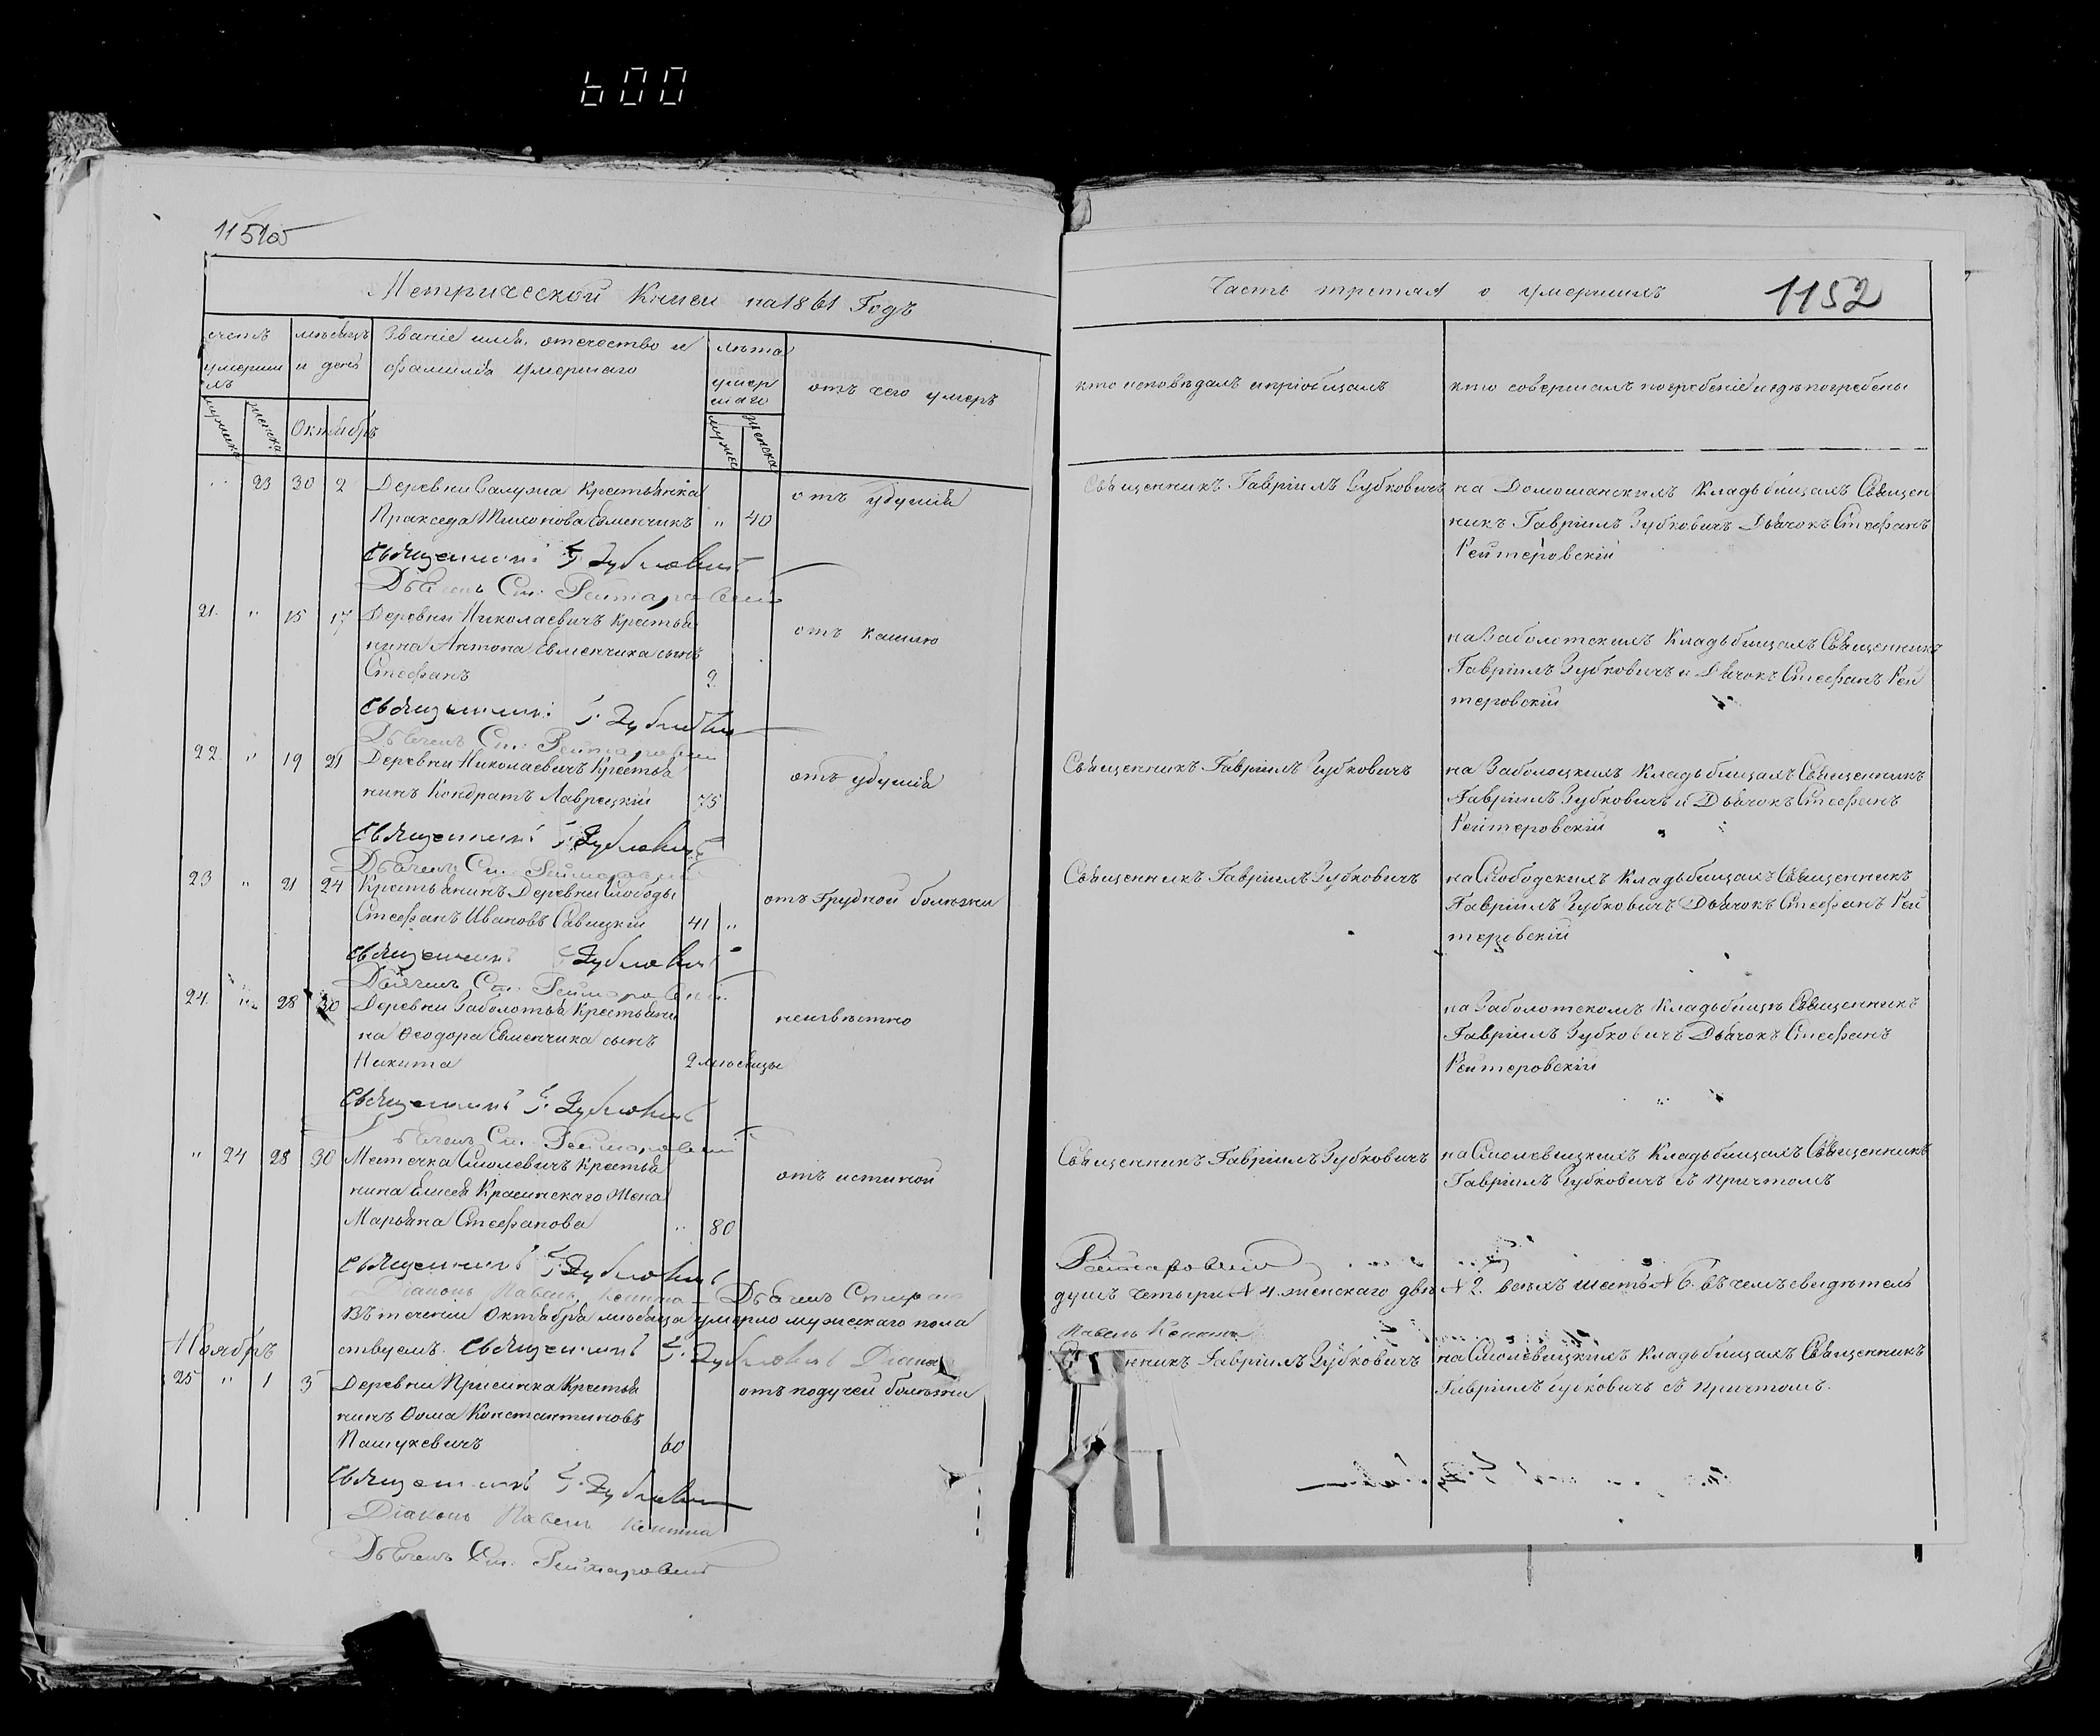 600
Метрической Книги на 1861 Годъ
Часть третая о умершихъ
1152
счетъ умерши хъ
мѣсяцъ и день
Званіе имя, отчество и фамилія умершаго
лѣта умер шаго
отъ чего умеръ
кто исповѣдалъ и пріобщалъ
кто совершалъ погребеніе и гдѣ погребены
мужска
женска
Октябрь
мужес
женска
23 30 2 Деревни Крестьянка
" 40
отъ удушія
Священникъ Гавріилъ Зубковичъ
на Домошанскихъ Кладьбищахъ Священ
никъ Гавріилъ Зубковичъ Дьячокъ Стефанъ
Рейтеровскій
Священникъ Г. Зубковичъ
Дьячекъ Ст. Рейтаровскій
21. " 15 17 Деревни Николаевичъ Крестья
нина Антона Евменчика сынъ
Стефанъ 2
отъ кашлю
на Заболотскихъ Кладьбищахъ Священникъ
Гавріилъ Зубковичъ и Дьячокъ Стефанъ Рей
теровскій
Священникъ Г. Зубковичъ
Дьячекъ Ст. Рейтаровскій
22. " 19 21 Деревни Николаевичъ Крестья
нинъ Кондратъ Лаврецкій 75
отъ удушія
Священникъ Гавріилъ Зубковичъ
на Заболоцкихъ Кладьбищахъ Священникъ
Гавріилъ Зубковичъ и Дьячокъ Стефанъ
Рейтеровскій
Священникъ Г. Зубковичъ
Дьячекъ Ст. Рейтаровскій
23 " 21 24 Крестьянинъ Деревни Слободы
Стефанъ Ивановъ Савицкій 41 "
отъ Грудной болѣзни
Священникъ Гавріилъ Зубковичъ
на Слободскихъ Кладьбищахъ Священникъ
Гавріилъ Зубковичъ Дьячокъ Стефанъ Рей
теровскій
Священникъ Г. Зубковичъ
Дьячекъ Ст. Рейтаровскій
24. 28 30 Деревни Заболотья Крестьяни
на Ѳеодора Евменчика сынъ
Никита 2 мѣсяцы
неизвѣстно
на Заболотскомъ Кладьбищѣ Священникъ
Гавріилъ Зубковичъ Дьячокъ Стефанъ
Рейтеровскій
Священникъ Г. Зубковичъ
Дьячекъ Ст. Рейтаровскій
" 24 28 30 Местечка Смолевичъ Крестья
нина Елисея Красинскаго Жена
Марьяна Стефанова " 80
Священникъ Гавріилъ Зубковичъ
на Смолевицкихъ Кладьбищахъ Священникъ
Гавріилъ Зубковичъ съ причтомъ
Священникъ Г. Зубковичъ
Діаконъ Павелъ Дьячекъ Стефанъ
Рейтаровскій
Въ теченіи Октября мѣсяца умерло мужескаго пола
душъ четыри № 4. женскаго двѣ № 2. всѣхъ шесть № 6. въ чемъ свидѣтель
ствуемъ. Священникъ Г. Зубковичъ Діаконъ
Павелъ
Ноябрь
25 " 1 3 Деревни Крестья
нинъ Ѳома Константиновъ
Пашукевичъ 60
отъ подучей болѣзни
Гавріилъ Зубковичъ
на Смолевицкихъ Кладьбищахъ Священникъ
Гавріилъ Зубковичъ съ причтомъ.
Священникъ Г. Зубковичъ
Діаконъ Павелъ
Дьячекъ Ст. Рейтаровскій